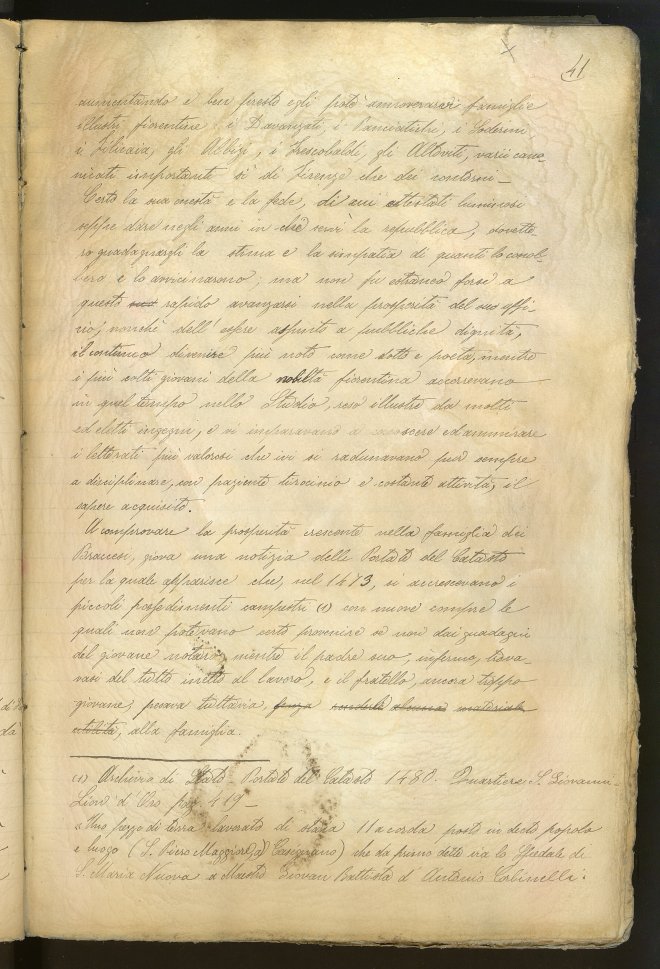 41
aumentando e ben presto egli potè annoverarvi famiglie
illustri fiorentine: i Davanzati, i Panciatichi, i Soderini,
i Filicaia, gli Albizi, i Frescobaldi, gli Altoviti, varii cano-
nicati importanti sì di Firenze che dei contorni_
Certo la sua onestà e la fede, di cui attestati luminosi
seppe dare negli anni in che servì la repubblica, dovette-
ro guadagnargli la stima e la simpatia di quanti lo conob-
bero e lo avvicinarono; ma non fu estraneo forse a
questo suo rapido avanzarsi nella prosperità del suo uffi-
cio, nonchè dell'esser assunto a pubbliche dignità,
il continuo divenire più noto come dotto e poeta, mentre
i più colti giovani della nobiltà fiorentina accorrevano
in quel tempo nello Studio, reso illustre da molti
ed eletti ingegni, e vi imparavano a conoscere ed ammirare
i letterati più valorosi che ivi si radunavano pur sempre
a disciplinare, con paziente tirocinio e costante attività, il
sapere acquisito.
A comprovare la prosperità crescente nella famiglia dei
Braccesi, giova una notizia delle Portate del Catasto
per la quale apparisce che, nel 1473, si accrescevano i
piccoli possedimenti campestri (1) con nuove compre le
quali non potevano certo provenire se non dai guadagni
del giovane notaro, mentre il padre suo, infermo, trova-
vasi del tutto inetto al lavoro, e il fratello, ancora troppo
giovane, pesava tuttavia senza renderle alcuna materiale
utilità, alla famiglia.
(1) Archivio di Stato_ Portate del Catasto 1480. Quartiere S. Giovanni_
Lion d'Oro pag. 419_
"Uno pezzo di terra lavorato di staia 11 a corda posto in decto popolo
e luogo (S. Piero Maggiore, a) che da primo dette via lo Spedale di
S. Maria Nuova a Maestro Giovan Battista d'Antonio Corbinelli.